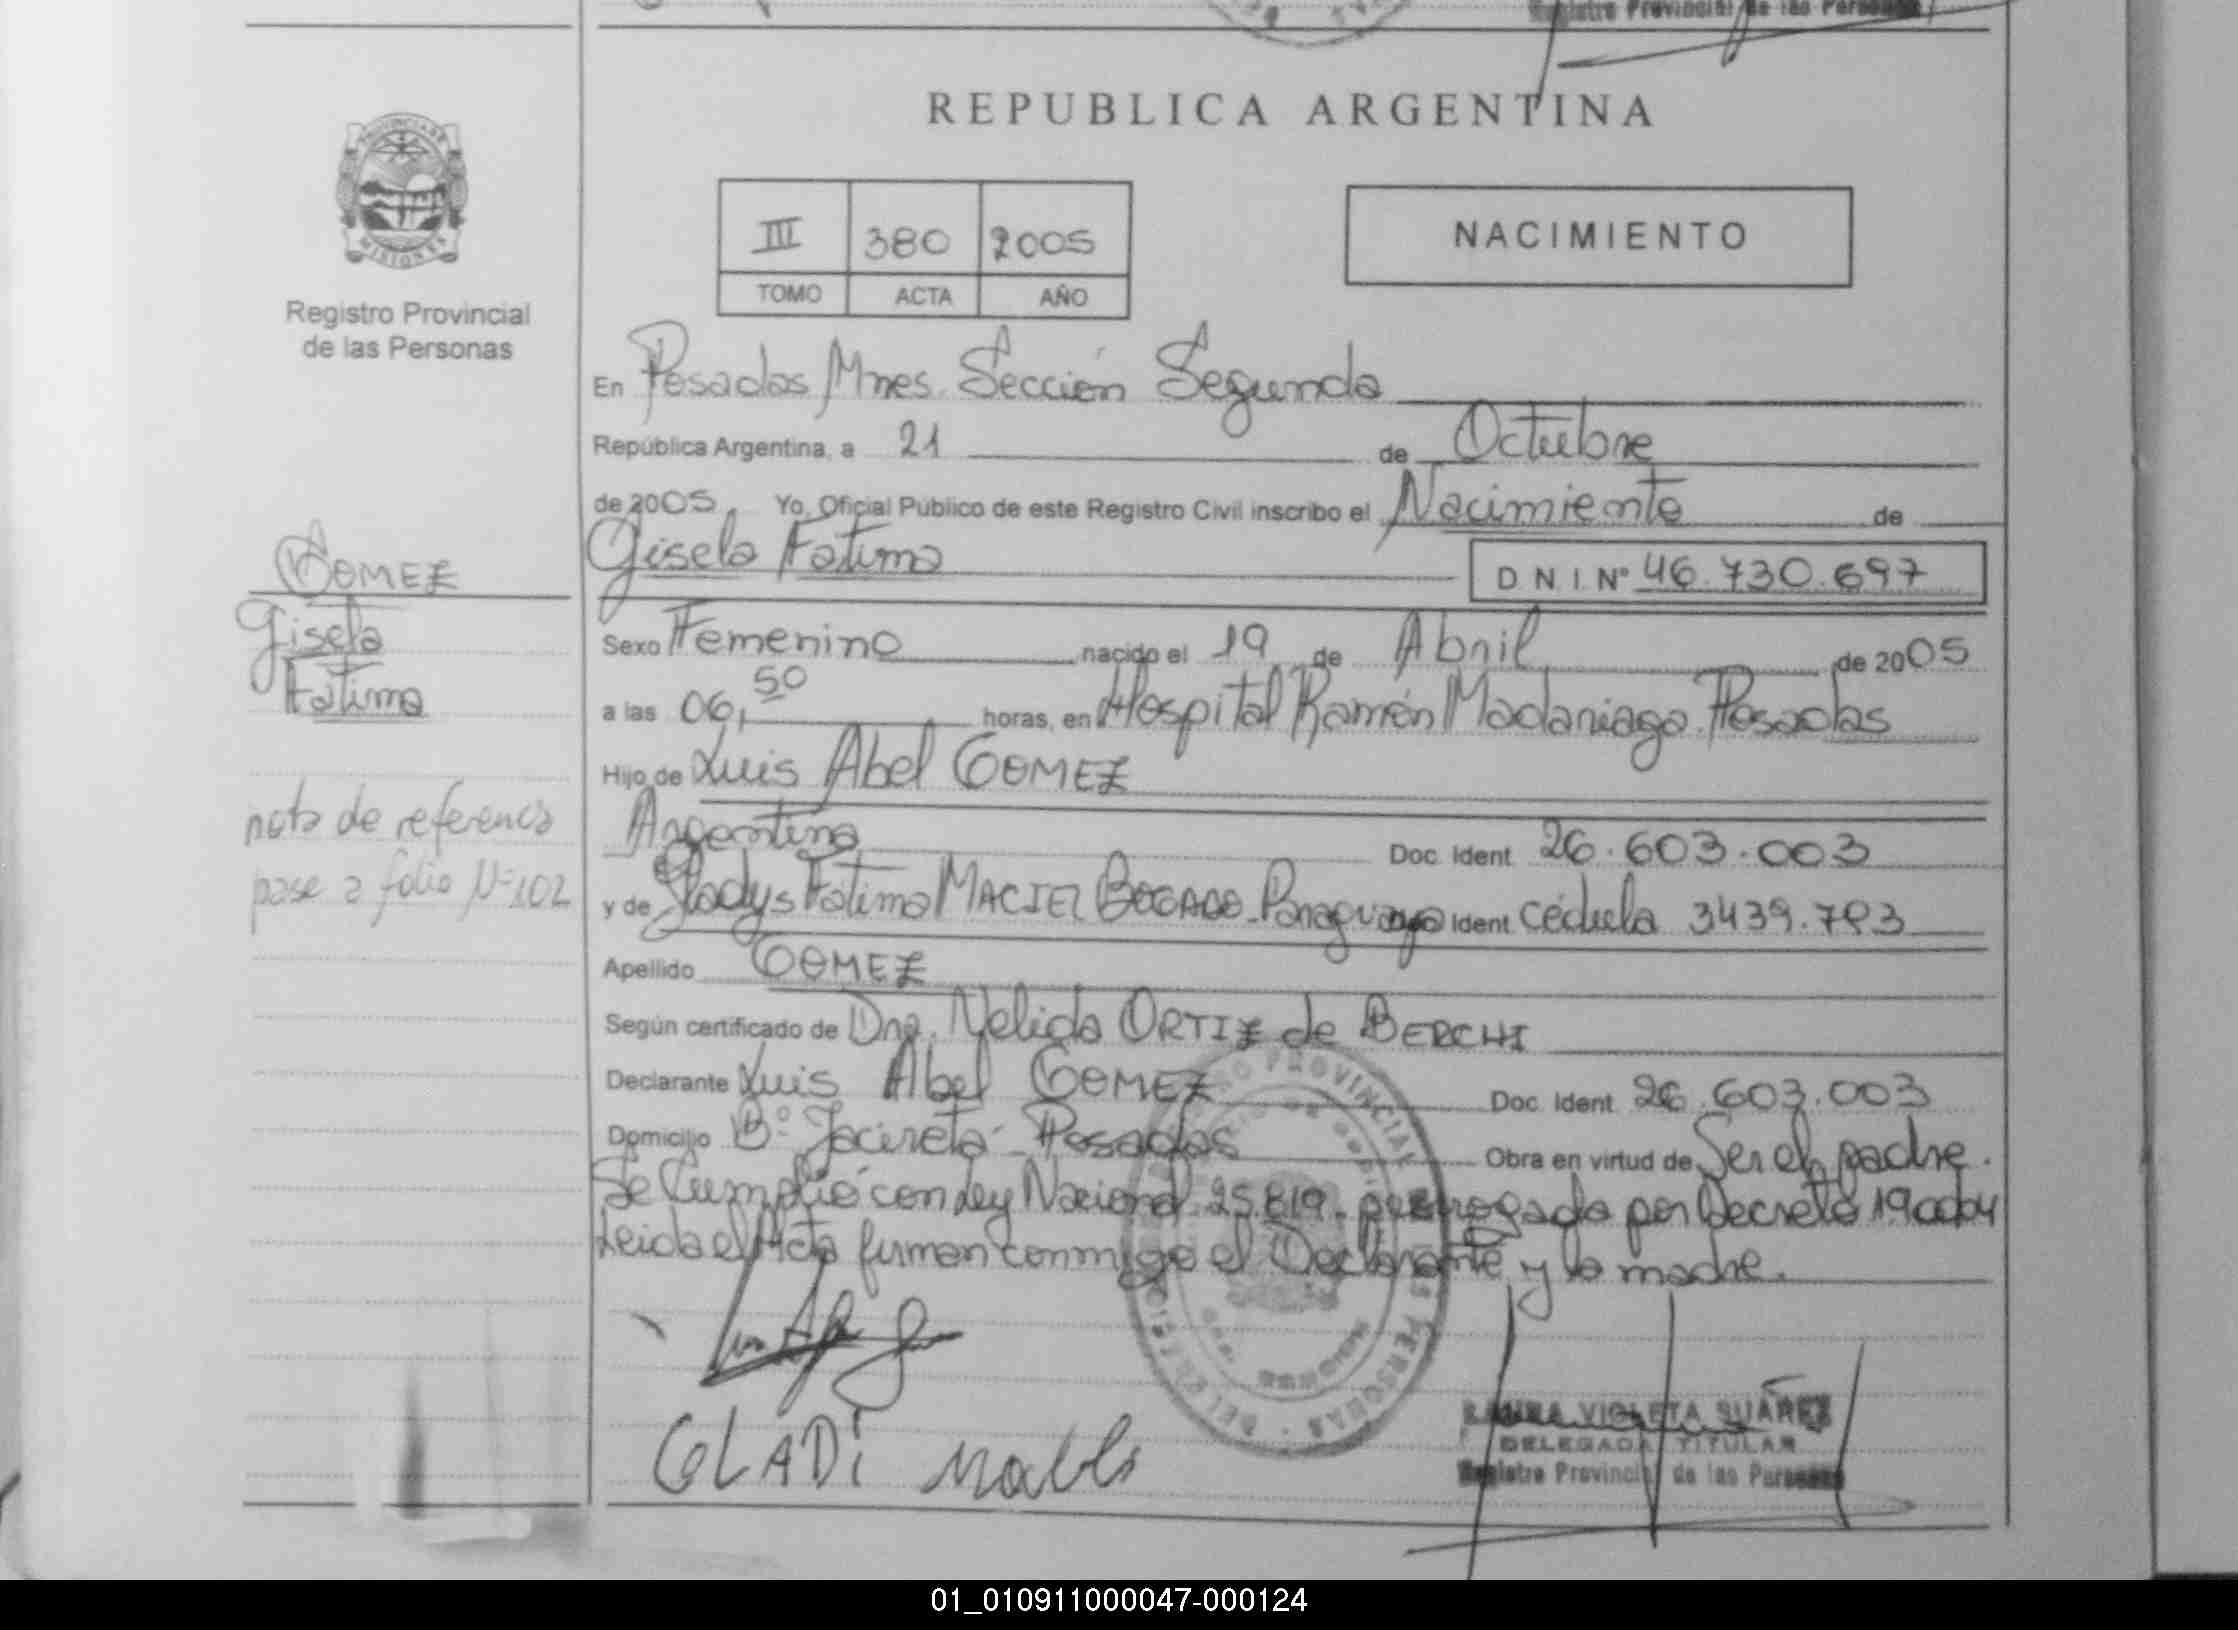 Registro Provincial de las Personas
REPUBLICA ARGENTINA
PROVINCIA DE
MISIONES
Registro Provincial
de las Personas
III 380 2005
TOMO ACTA AÑO
NACIMIENTO
En Posadas Mnes. Sección Segunda
República Argentina, a 21 de Octubre
de 2005. Yo, Oficial Público de este Registro Civil inscribo el Nacimiento de
GOMEZ
Gisela
Fatima
Gisela Fatima D.N.I. Nº 46.730.697
Sexo Femenino nacido el 19 de Abril de 2005
a las 06,50 horas, en Hospital Ramón Madariaga. Posadas
Hijo de Luis Abel GOMEZ
nota de referencia
pase a folio Nº 102
Argentino Doc. Ident. 26.603.003
y de Gladys Fatima MACIEL BOGADO. Paraguaya Ident. Cédula 3439.793
Apellido GOMEZ
Según certificado de Dra. Nelida ORTIZ de BERCHI
Declarante Luis Abel GOMEZ Doc. Ident. 26.603.003
Domicilio Bº Jacireta - Posadas Obra en virtud de Ser el padre.
Se Cumplió con Ley Nacional 25.819. prorrogada por Decreto
Leida el Acta firman conmigo el Declarante y la madre.
GLADI
VIOLETA SUÁREZ
DELEGADA TITULAR
Registro Provincial de las Personas
01_010911000047-000124